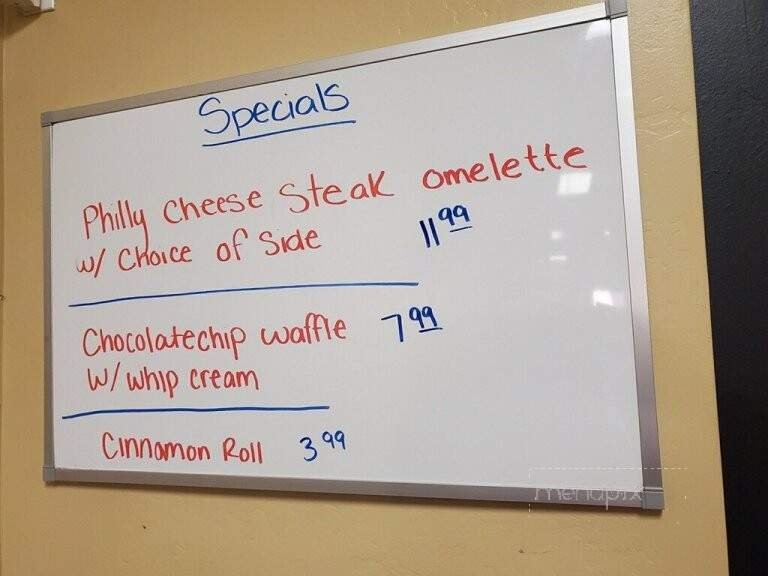 Specials
Philly Cheese Steak omelette
w/ Choice of Side 11.99
Chocolatechip waffle 7.99
w/ whip cream
Cinnamon Roll 3.99
menupix